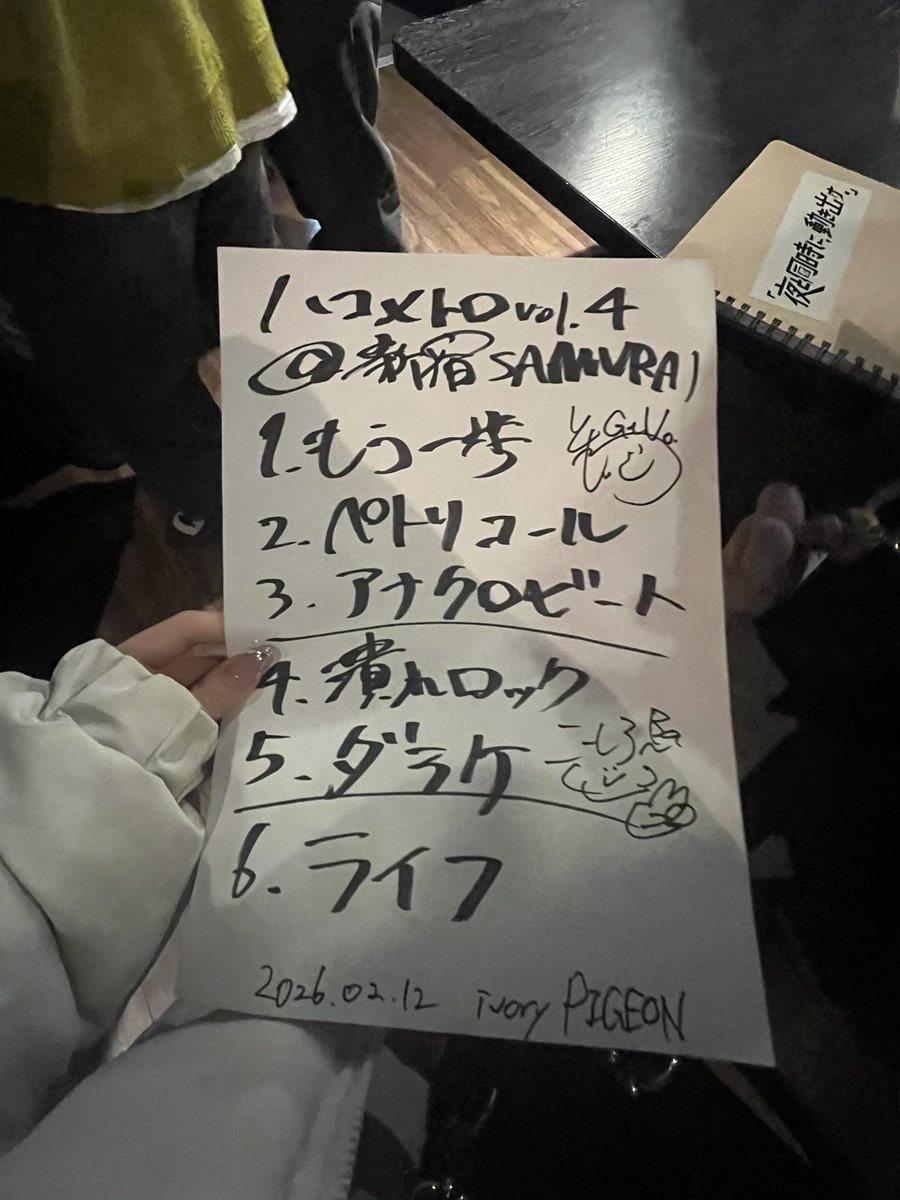 ハコメトロ vol.4
@新宿SAMURAI
1. もう一歩
Gt.Vo.
2. ペトリコール
3. アナクロビート
4. 潰れロック
5. ダラケ
6. ライフ
2026.02.12 ivory PIGEON
「夜と同時に動き出す」